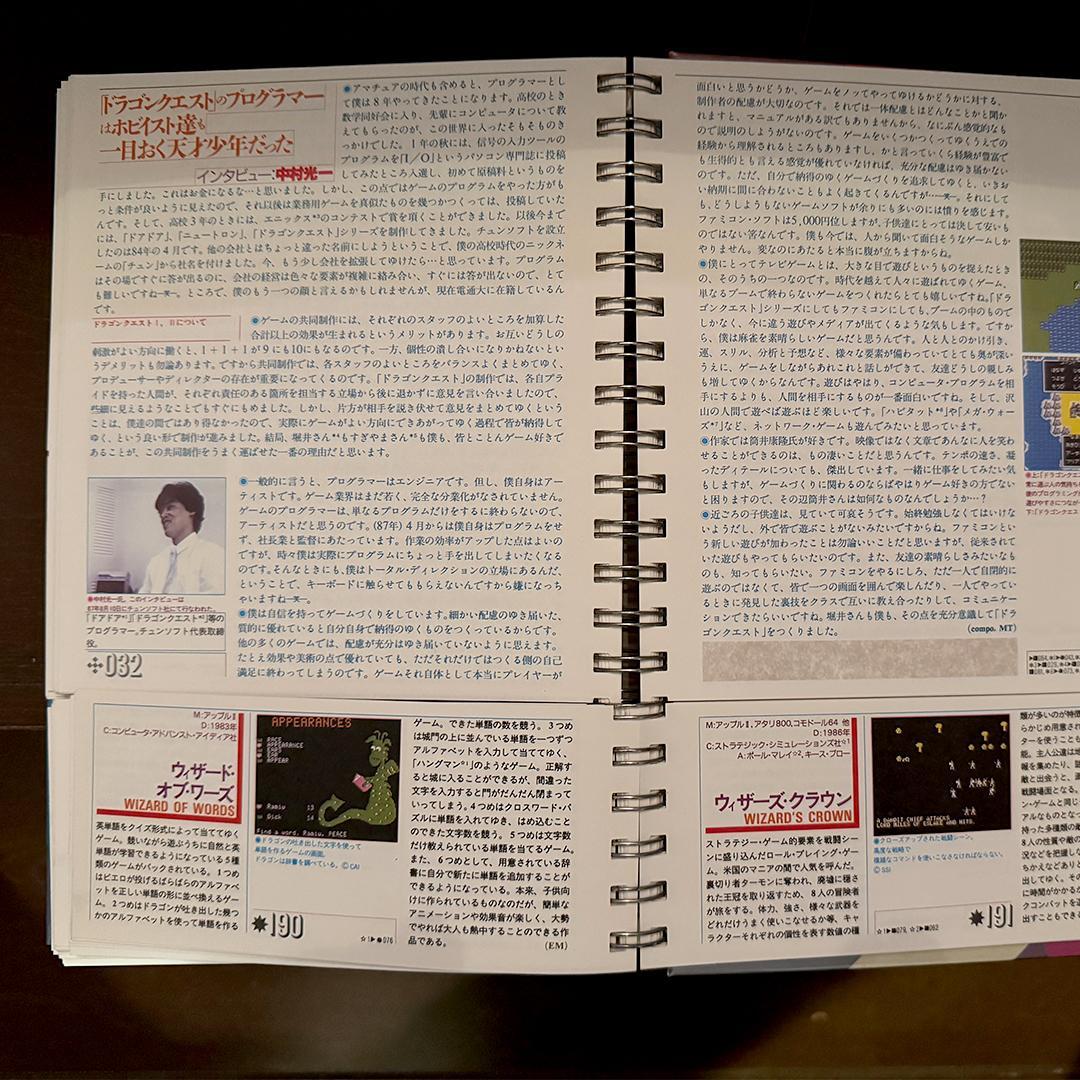 「ドラゴンクエスト」のプログラマー
はホビイスト達も
一目おく天才少年だった
インタビュー:中村光一
●アマチュアの時代も含めると、プログラマーとし
て僕は8年やってきたことになります。高校のとき
数学同好会に入り、先輩にコンピュータについて教
えてもらったのが、この世界に入ったそもそものき
っかけでした。1年の秋には、信号の入力ツールの
プログラムを「I/O」というパソコン専門誌に投稿
してみたところ入選し、初めて原稿料というものを
手にしました。これはお金になるな…と思いました。しかし、この点ではゲームのプログラムをやった方がも
っと条件が良いように見えたので、それ以後は業務用ゲームを真似たものを幾つかつくっては、投稿していた
んです。そして、高校3年のときには、エニックス*³のコンテストで賞を頂くことができました。以後今まで
には、「ドアドア」、「ニュートロン」、「ドラゴンクエスト」シリーズを制作してきました。チュンソフトを設立
したのは84年の4月です。他の会社とはちょっと違った名前にしようということで、僕の高校時代のニックネ
ームの「チュン」から社名を付けました。今、もう少し会社を拡張してゆけたら…と思っています。プログラム
はその場ですぐに答が出るのに、会社の経営は色々な要素が複雑に絡み合い、すぐには答が出ないので、とて
も難しいですね—笑—。ところで、僕のもう一つの顔と言えるかもしれませんが、現在電通大に在籍しているん
です。
ドラゴンクエストⅠ、Ⅱについて
●ゲームの共同制作には、それぞれのスタッフのよいところを加算した
合計以上の効果が生まれるというメリットがあります。お互いどうしの
刺激がよい方向に働くと、1+1+1が9にも10にもなるのです。一方、個性の潰し合いになりかねないとい
うデメリットも勿論あります。ですから共同制作では、各スタッフのよいところをバランスよくまとめてゆく、
プロデューサーやディレクターの存在が重要になってくるのです。「ドラゴンクエスト」の制作では、各自プラ
イドを持った人間が、それぞれ責任のある箇所を担当する立場から後に退かずに意見を言い合いましたので、
些細に見えるようなことでもすぐにもめました。しかし、片方が相手を説き伏せて意見をまとめてゆくという
ことは、僕達の間ではあり得なかったので、実際にゲームがよい方向にできあがってゆく過程で皆が納得して
ゆく、という良い形で制作が進みました。結局、堀井さん*⁴もすぎやまさん*⁵も僕も、皆とことんゲーム好きで
あることが、この共同制作をうまく運ばせた一番の理由だと思います。
●一般的に言うと、プログラマーはエンジニアです。但し、僕自身はアー
ティストです。ゲーム業界はまだ若く、完全な分業化がなされていません。
ゲームのプログラマーは、単なるプログラムだけをするに終わらないので、
アーティストだと思うのです。(87年)4月からは僕自身はプログラムをせ
ず、社長業と監督にあたっています。作業の効率がアップした点はよいの
ですが、時々僕は実際にプログラムにちょっと手を出してしまいたくなる
のです。そんなときにも、僕はトータル・ディレクションの立場にあるんだ、
ということで、キーボードに触らせてももらえないんですから嫌になっち
ゃいますね—笑—。
●僕は自信を持ってゲームづくりをしています。細かい配慮のゆき届いた、
質的に優れていると自分自身で納得のゆくものをつくっているからです。
他の多くのゲームでは、配慮が充分はゆき届いていないように思います。
たとえ効果や美術の点で優れていても、ただそれだけではつくる側の自己
満足に終わってしまうのです。ゲームそれ自体として本当にプレイヤーが
●中村光一氏。このインタビューは
87年8月10日にチュンソフト社にて行なわれた。
「ドアドア*¹」「ドラゴンクエスト*²」等の
プログラマー。チュンソフト代表取締
役。
032
面白いと思うかどうか、ゲームをノッてやってゆけるかどうかに対する、
制作者の配慮が大切なのです。それでは一体配慮とはどんなことかと聞か
れますと、マニュアルがある訳でもありませんから、なにぶん感覚的なも
ので説明のしようがないのです。ゲームをいくつかつくってゆくうえでの
経験から理解されるところもありますし、かと言っていくら経験が豊富で
も生得的とも言える感覚が優れていなければ、充分な配慮はゆき届かない
のです。ただ、自分で納得のゆくゲームづくりを追求してゆくと、いきお
い納期に間に合わないこともよく起きてくるんですが…—笑—。それにして
も、どうしようもないゲームソフトが余りにも多いのには憤りを感じます。
ファミコン・ソフトは5,000円位しますが、子供達にとっては決して安いも
のではない筈なんです。僕も今では、人から聞いて面白そうなゲームしか
やりません。変なのにあたると本当に腹が立ちますからね。
●僕にとってテレビゲームとは、大きな目で遊びというものを捉えたとき
の、そのうちの一つなのです。時代を越えて人々に遊ばれてゆくゲーム、
単なるブームで終わらないゲームをつくれたらとても嬉しいですね。「ドラ
ゴンクエスト」シリーズにしてもファミコンにしても、ブームの中のもので
しかなく、今に違う遊びやメディアが出てくるような気もします。ですか
ら、僕は麻雀を素晴らしいゲームだと思うんです。人と人とのかけ引き、
運、スリル、分析と予想など、様々な要素が備わっていてとても奥が深い
うえに、ゲームをしながらあれこれと話しができて、友達どうしの親しみ
も増してゆくからなんです。遊びはやはり、コンピュータ・プログラムを相
手にするよりも、人間を相手にするものが一番面白いですね。そして、沢
山の人間で遊べば遊ぶほど楽しいです。「ハビタット*⁶」や「メガ・ウォー
ズ*⁷」など、ネットワーク・ゲームも遊んでみたいと思っています。
●作家では筒井康隆氏が好きです。映像ではなく文章であんなに人を笑わ
せることができるのは、もの凄いことだと思うんです。テンポの速さ、凝
ったディテールについても、傑出しています。一緒に仕事をしてみたい気
もしますが、ゲームづくりに関わるのならばやはりゲーム好きの方でない
と困りますので、その辺筒井さんは如何なものなんでしょうか…?
●近ごろの子供達は、見ていて可哀そうです。始終勉強しなくてはいけな
いようだし、外で皆で遊ぶことがないみたいですからね。ファミコンとい
う新しい遊びが加わったことは勿論いいことだと思いますが、従来されて
いた遊びもやってもらいたいのです。また、友達の素晴らしさみたいなも
のも、知ってもらいたい。ファミコンをやるにしろ、ただ一人で自閉的に
遊ぶのではなくて、皆で一つの画面を囲んで楽しんだり、一人でやってい
るときに発見した裏技をクラスで互いに教え合ったりして、コミュニケー
ションできたらいいですね。堀井さんも僕も、その点を充分意識して「ドラ
ゴンクエスト」をつくりました。
(compo. MT)
M:アップルⅡ
D:1983年
C:コンピュータ・アドバンスト・アイディア社
ウィザード・
オブ・ワーズ
WIZARD OF WORDS
英単語をクイズ形式によって当ててゆく
ゲーム。競いながら遊ぶうちに自然と英
単語が学習できるようになっている5種
類のゲームがパックされている。1つめ
はピエロが投げるばらばらのアルファベ
ットを正しい単語の形に並べ換えるゲー
ム。2つめはドラゴンが吐き出した幾つ
かのアルファベットを使って単語を作る
APPEARANCES
RACE
APPEARANCE
EARS
EAR
APPEAR
Ramiu 13
Dick 14
Find a word. Ramiu, PEACE
●ドラゴンの吐き出した文字を使って
単語を作るゲームの画面。
ドラゴンは辞書を調べている。© CAI
190
ゲーム。できた単語の数を競う。3つめ
は城門の上に並んでいる単語を一つずつ
アルファベットを入力して当ててゆく、
「ハングマン*¹」のようなゲーム。正解す
ると城に入ることができるが、間違った
文字を入力すると門がだんだん閉まって
いってしまう。4つめはクロスワード・パ
ズルに単語を入れてゆき、はめ込むこと
のできた文字数を競う。5つめは文字数
だけ教えられている単語を当てるゲーム。
また、6つめとして、用意されている辞
書に自分で新たに単語を追加することが
できるようになっている。本来、子供向
けに作られているものなのだが、簡単な
アニメーションや効果音が楽しく、大勢
でやれば大人も熱中することのできる作
品である。
(EM)
☆1▶■076
M:アップルⅡ、アタリ800、コモドール64 他
D:1986年
C:ストラテジック・シミュレーションズ社☆1
A:ポール・マレイ☆2、キース・ブロー
ウィザーズ・クラウン
WIZARD'S CROWN
ストラテジー・ゲーム的要素を戦闘シー
ンに盛り込んだロール・プレイング・ゲー
ム。米国のマニアの間で人気を呼んだ。
裏切り者ターモンに奪われ、廃墟に隠さ
れた王冠を取り返すため、8人の冒険者
が旅をする。体力、強さ、様々な武器を
どれだけうまく使いこなせるか等、キャ
ラクターそれぞれの個性を表す数値の種
A BANDIT CHIEF ATTACKS
●クローズアップされた戦闘シーン。
高度な戦略で
複雑なコマンドを使いこなさなければならない。
© SSI
191
☆1▶■079, ☆2▶■062